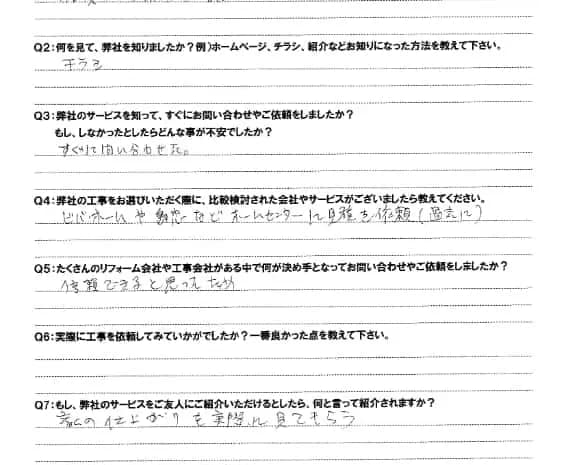 Q2:何を見て、弊社を知りましたか？例)ホームページ、チラシ、紹介などお知りになった方法を教えて下さい。
チラシ
Q3:弊社のサービスを知って、すぐにお問い合わせやご依頼をしましたか？
もし、しなかったとしたらどんな事が不安でしたか？
すぐに問い合わせた。
Q4:弊社の工事をお選びいただく際に、比較検討された会社やサービスがございましたら教えてください。
ビバホームや などホームセンターに見積を依頼(過去に)
Q5:たくさんのリフォーム会社や工事会社がある中で何が決め手となってお問い合わせやご依頼をしましたか？
信頼できると思ったため
Q6:実際に工事を依頼してみていかがでしたか？一番良かった点を教えて下さい。
Q7:もし、弊社のサービスをご友人にご紹介いただけるとしたら、何と言って紹介されますか？
私の仕上がりを実際に見てもらう